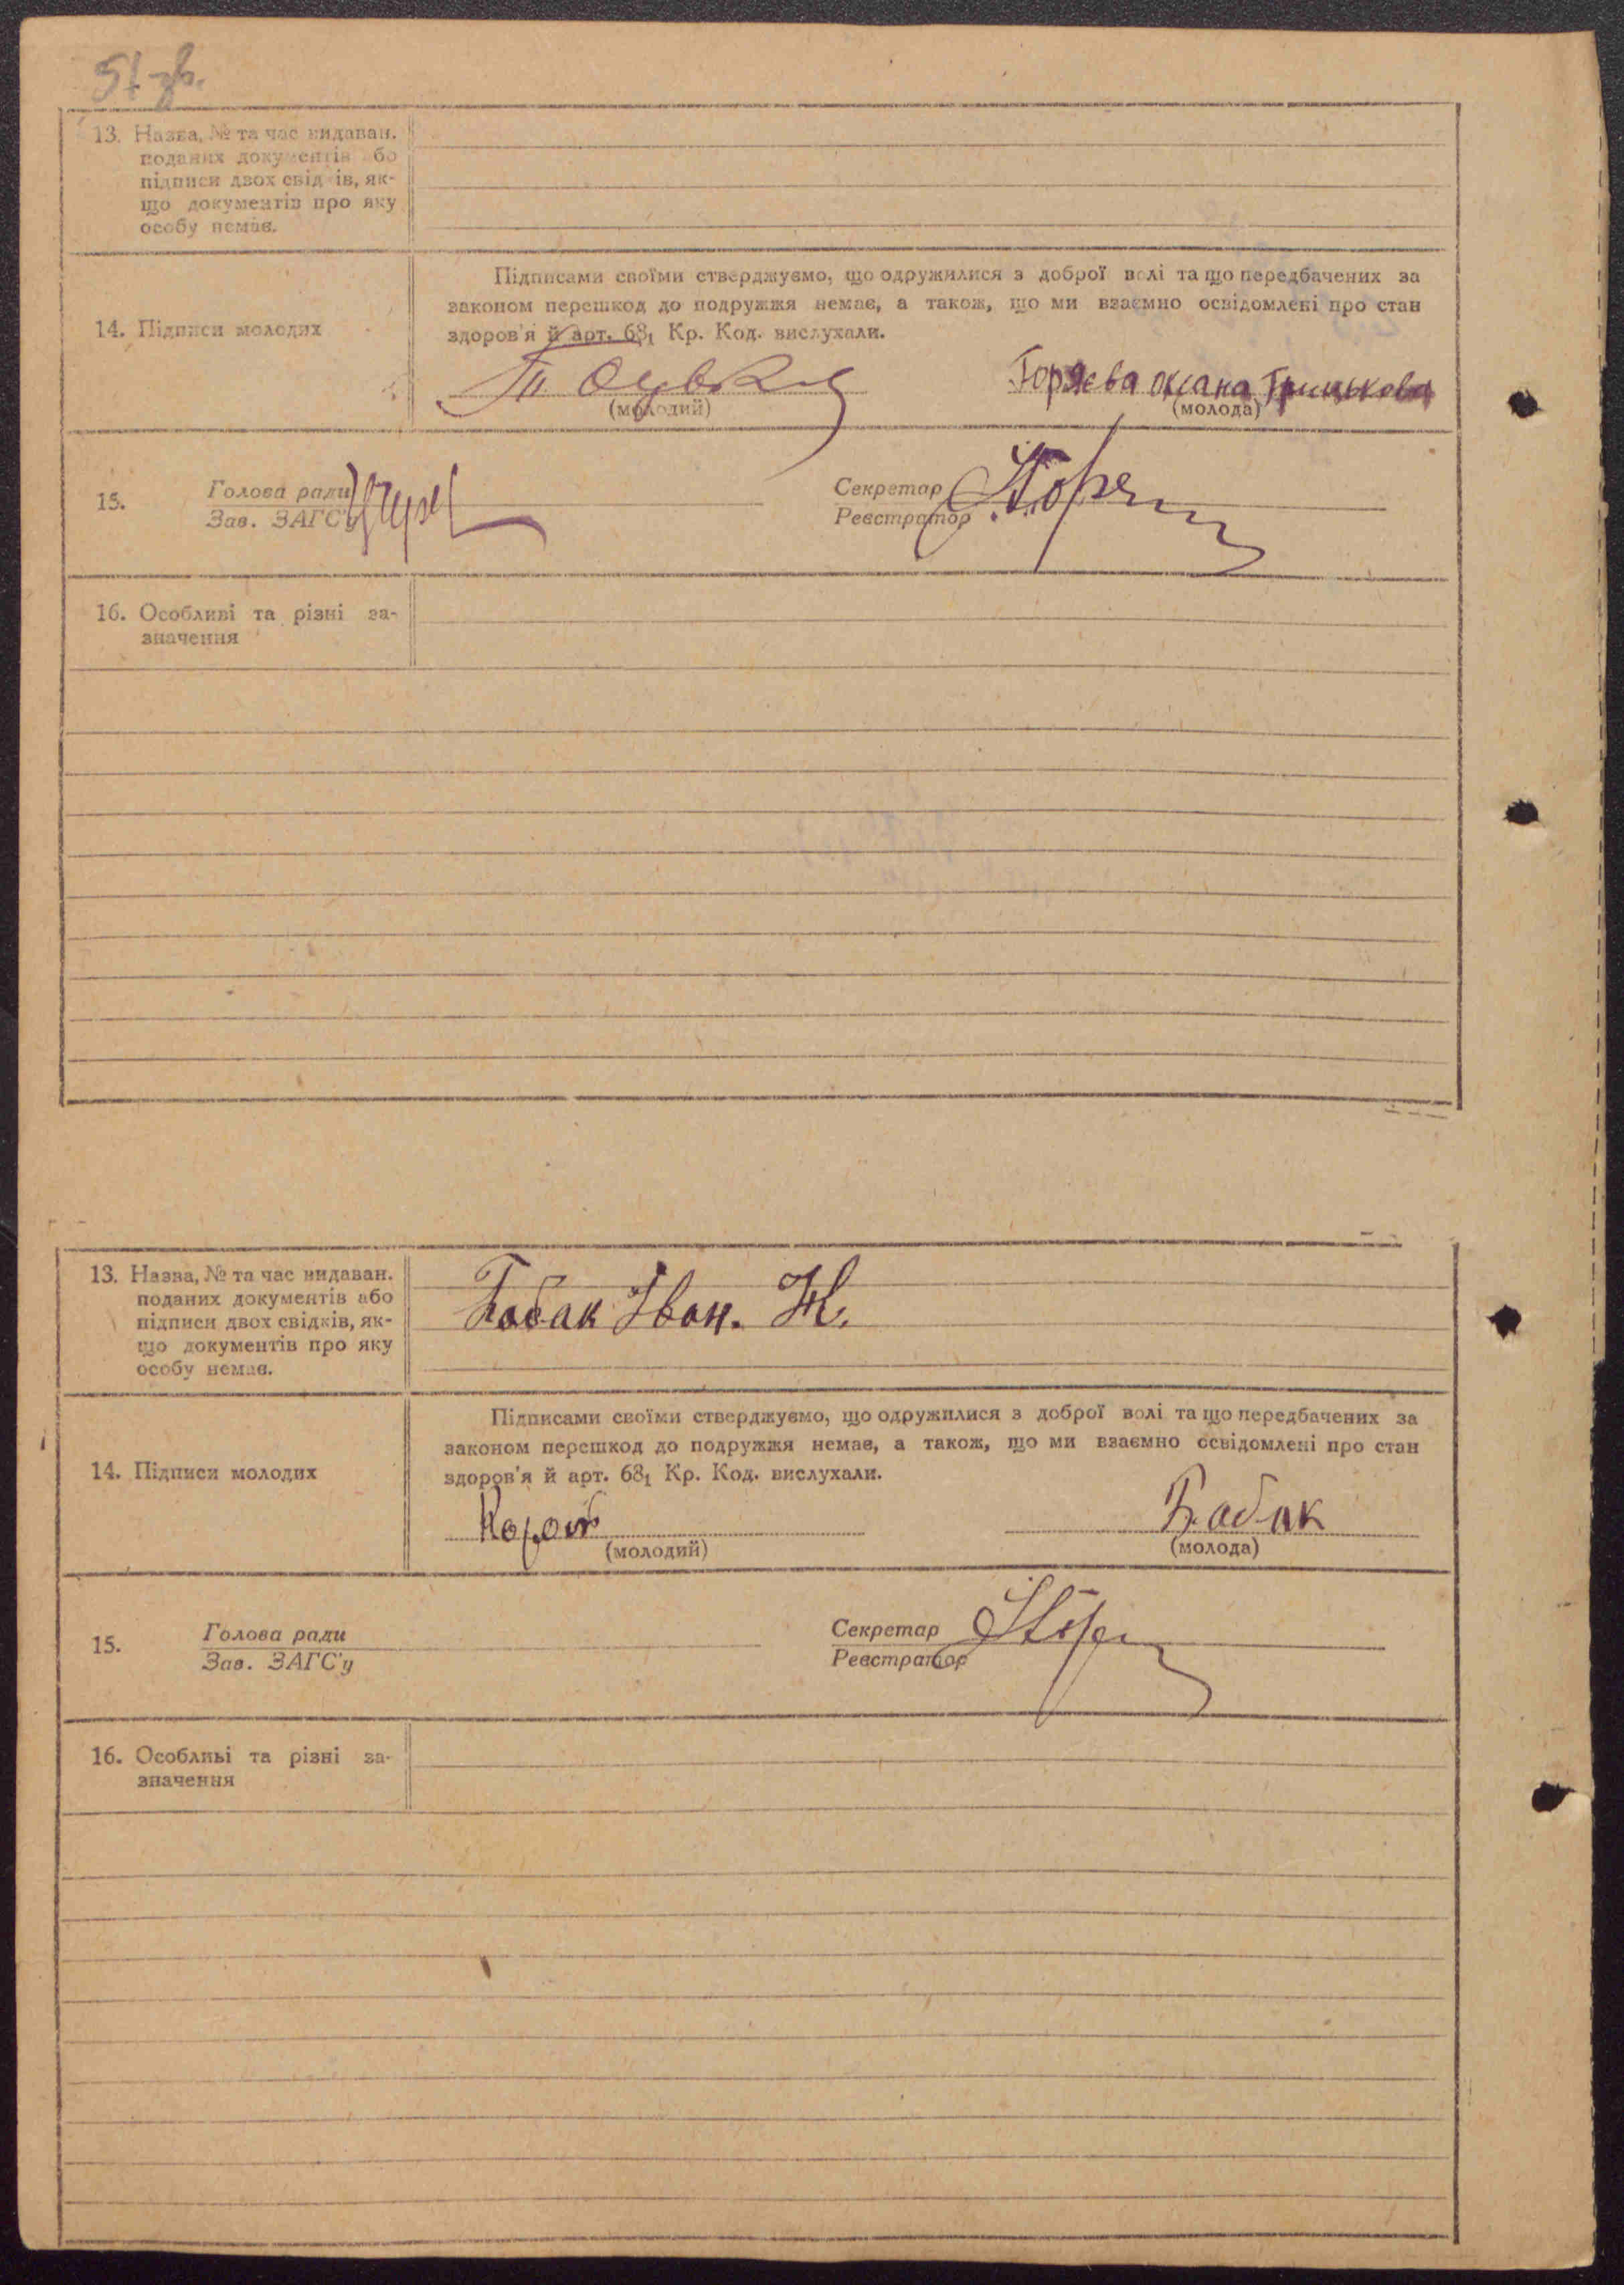 51 зв.
13. Назва, № та час видаван.
поданих документів або
підписи двох свідків, як-
що документів про яку
особу немає.
14. Підписи молодих
Підписами своїми стверджуємо, що одружилися з доброї волі та що передбачених за
законом перешкод до подружжя немає, а також, що ми взаємно освідомлені про стан
здоров'я й арт. 68₁ Кр. Код. вислухали.
Оксана
(молодий) (молода)
15. Голова ради Секретар
Зав. ЗАГС'у Реєстратор
16. Особливі та різні за-
значення
13. Назва, № та час видаван.
поданих документів або
підписи двох свідків, як-
що документів про яку
особу немає.
Бабак Іван. Ж.
14. Підписи молодих
Підписами своїми стверджуємо, що одружилися з доброї волі та що передбачених за
законом перешкод до подружжя немає, а також, що ми взаємно освідомлені про стан
здоров'я й арт. 68₁ Кр. Код. вислухали.
Бабак
(молодий) (молода)
15. Голова ради Секретар
Зав. ЗАГС'у Реєстратор
16. Особливі та різні за-
значення